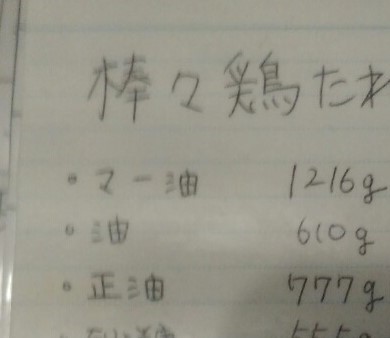 棒々鶏たれ
・マー油 1216g
・油 610g
・正油 777g